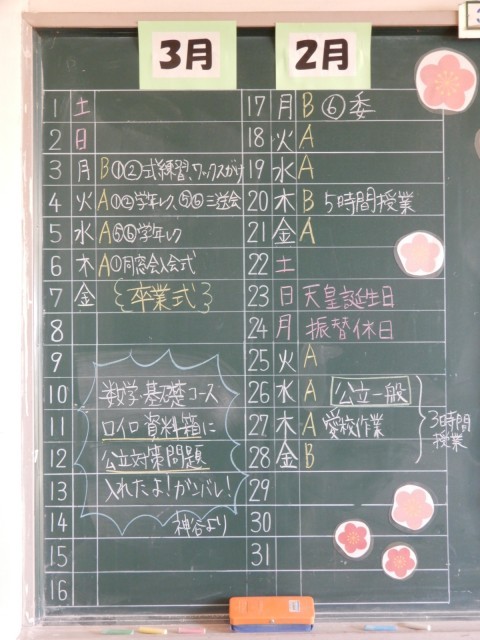 3月
2月
1 土
2 日
3 月 B ①② 式練習、ワックスがけ
4 火 A ①② 学年レク、⑤⑥ 三送会
5 水 A ⑤⑥ 学年レク
6 木 A ① 同窓会入会式
7 金 卒業式
8
9
10
11
12
13
14
15
16
数学・基礎コース
ロイロ資料箱に
公立対策問題
入れたよ!ガンバレ!
神谷より
17 月 B ⑥ 委
18 火 A
19 水 A
20 木 B 5時間授業
21 金 A
22 土
23 日 天皇誕生日
24 月 振替休日
25 火 A
26 水 A 公立一般
27 木 A 愛校作業
28 金 B
3時間
授業
29
30
31